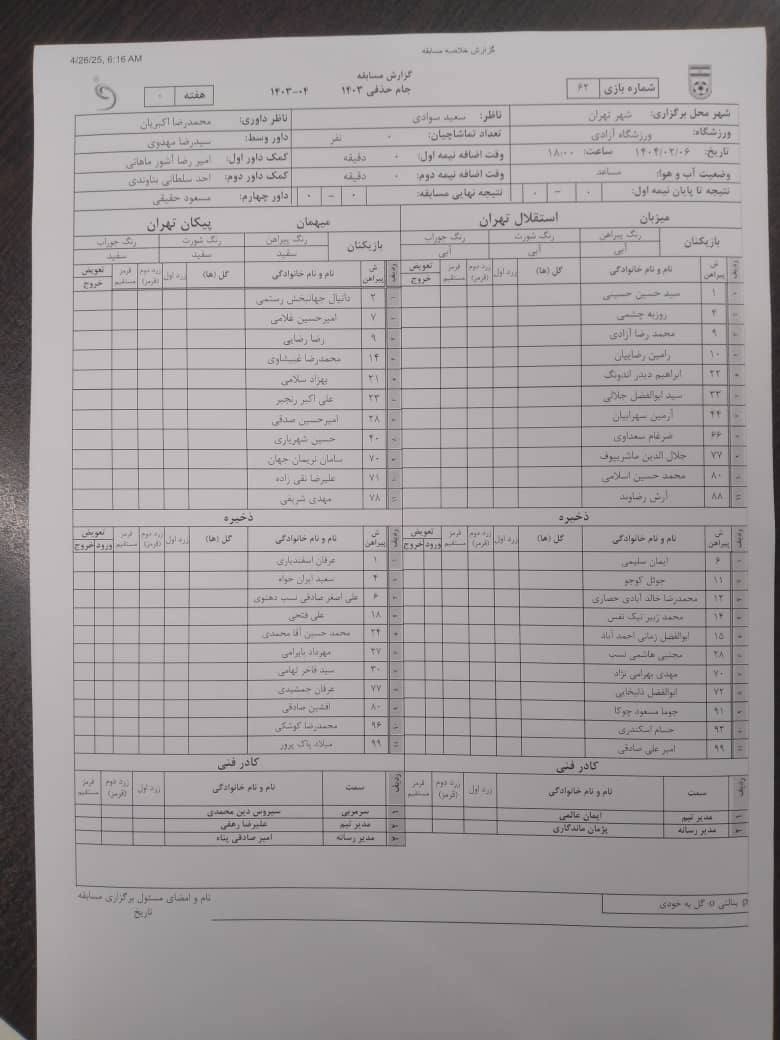 4/26/25, 6:16 AM
گزارش خلاصه مسابقه
گزارش مسابقه
شماره بازی ۶۲
جام حذفی ۱۴۰۳
۱۴۰۳-۰۴
هفته ۰
شهر محل برگزاری: شهر تهران
ناظر: سعید سوادی
ناظر داوری: محمدرضا اکبریان
ورزشگاه: ورزشگاه آزادی
تعداد تماشاچیان: ۰ نفر
داور وسط: سیدرضا مهدوی
تاریخ: ۱۴۰۴/۰۲/۰۶ ساعت: ۱۸:۰۰
وقت اضافه نیمه اول: ۰ دقیقه
کمک داور اول: امیر رضا آشور ماهانی
وضعیت آب و هوا: مساعد
وقت اضافه نیمه دوم: ۰ دقیقه
کمک داور دوم: احد سلطانی بناوندی
نتیجه تا پایان نیمه اول: ۰ - ۰
نتیجه نهایی مسابقه: ۰ - ۰
داور چهارم: مسعود حقیقی
میزبان استقلال تهران
میهمان پیکان تهران
بازیکنان رنگ پیراهن رنگ شورت رنگ جوراب
آبی آبی آبی
بازیکنان رنگ پیراهن رنگ شورت رنگ جوراب
سفید سفید سفید
ردیف ش پیراهن نام و نام خانوادگی گل (ها) زرد اول زرد دوم (قرمز) قرمز مستقیم تعویض خروج
ردیف ش پیراهن نام و نام خانوادگی گل (ها) زرد اول زرد دوم (قرمز) قرمز مستقیم تعویض خروج
۱ سید حسین حسینی
۲ دانیال جهانبخش رستمی
۴ روزبه چشمی
۷ امیرحسین غلامی
۹ محمد رضا آزادی
۹ رضا رضایی
۱۰ رامین رضاییان
۱۴ محمدرضا غبیشاوی
۲۲ ابراهیم دیدر اندونگ
۲۱ بهزاد سلامی
۳۳ سید ابوالفضل جلالی
۲۳ علی اکبر رنجبر
۴۴ آرمین سهرابیان
۲۸ امیرحسین صدقی
۶۶ ضرغام سعداوی
۴۰ حسین شهریاری
۷۷ جلال الدین ماشریپوف
۷۰ سامان نریمان جهان
۸۰ محمد حسین اسلامی
۷۱ علیرضا نقی زاده
۸۸ آرش رضاوند
۷۸ مهدی شریفی
ذخیره
ذخیره
ردیف ش پیراهن نام و نام خانوادگی گل (ها) زرد اول زرد دوم (قرمز) قرمز مستقیم تعویض ورود خروج
ردیف ش پیراهن نام و نام خانوادگی گل (ها) زرد اول زرد دوم (قرمز) قرمز مستقیم تعویض ورود خروج
۶ ایمان سلیمی
۱ عرفان اسفندیاری
۱۱ جوئل کوجو
۴ سعید ایران خواه
۱۲ محمدرضا خالد آبادی حصاری
۶ علی اصغر صادقی نسب دهنوی
۱۴ محمد زبیر نیک نفس
۱۸ علی فتحی
۱۵ ابوالفضل زمانی احمد آباد
۲۴ محمد حسین آقا محمدی
۲۸ مجتبی هاشمی نسب
۲۷ مهرداد بایرامی
۷۰ مهدی بهرامی نژاد
۳۰ سید فاخر تهامی
۷۲ ابوالفضل ذلیخایی
۷۷ عرفان جمشیدی
۹۱ جوما مسعود چوکا
۸۰ افشین صادقی
۹۳ حسام اسکندری
۹۶ محمدرضا کوشکی
۹۹ امیر علی صادقی
۹۹ میلاد پاک پرور
کادر فنی
کادر فنی
ردیف سمت نام و نام خانوادگی زرد اول زرد دوم (قرمز) قرمز مستقیم
ردیف سمت نام و نام خانوادگی زرد اول زرد دوم (قرمز) قرمز مستقیم
۱ مدیر تیم ایمان عالمی
۱ سرمربی سیروس دین محمدی
۲ مدیر رسانه پژمان ماندگاری
۲ مدیر تیم علیرضا رهقی
۳ مدیر رسانه امیر صادقی پناه
پنالتی گل به خودی
نام و امضای مسئول برگزاری مسابقه
تاریخ